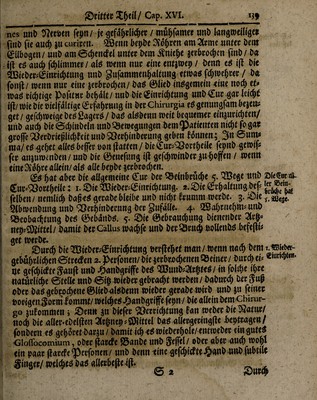 Dritter Theil / Cap. XVI. 139
nes und Nerven seyn / je gefährlicher / mühsamer und langweiliger
sind sie auch zu curiren. Wenn beyde Röhren am Arme unter dem
Ellbogen / und am Schenckel unter dem Kniehe zerbrochen sind / da
ist es auch schlimmer / als wenn nur eine entzwey / denn es ist die
Wieder-Einrichtung und Zusammenhaltung etwas schwehrer / da
sonst / wenn nur eine zerbrochen / das Glied insgemein eine noch et-
was richtige Postitur behält / und die Einrichtung und Cur gar leicht
ist / wie die vielfältige Erfahrung in der Chirurgia es gnungsam bezeu-
get / geschweige des Lagers / das alsdenn weit bequemer einzurichten /
und auch die Schindeln und Bewegungen dem Patienten nicht so gar
grosse Verdrießlichkeit und Verhinderung geben können; In Sum-
ma / es gehet alles besser von statten / die Cur-Vortheile seynd gewis-
ser anzuwenden / und die Genesung ist geschwinder zu hoffen / wenn
eine Röhre allein / als alle beyde zerbrochen.
Es hat aber die allgemeine Cur der Beinbrüche 5. Wege und
Cur-Vortheile: 1. Die Wieder-Einrichtung. 2. Die Erhaltung des-
selben / nemlich daß es gerade bleibe und nicht krumm werde. 3. Die
Abwendung und Verhinderung der Zufälle. 4. Wahrnehm- und
Beobachtung des Gebänds. 5. Die Gebrauchung dienender Artz-
ney-Mittel / damit der Callus wachse und der Bruch vollends befesti-
get werde.
Die Cur al-
ler Bein-
brüche hat
5. Wege.
Durch die Wieder-Einrichtung verstehet man / wenn nach dem
gebührlichen Strecken 2. Personen / die zerbrochenen Beiner / durch ei-
ne geschickte Faust und Handgriffe des Wund-Artztes / in solche ihre
natürliche Stelle und Sitz wieder gebracht werden / dadurch der Fuß
oder das gebrochene Glied alsdenn wieder gerade wird und zu seiner
vorigen Form kommt / welches Handgriffe seyn / die allein dem Chirur-
go zukommen; Denn zu dieser Verrichtung kan weder die Natur /
noch die aller-edelsten Artzney-Mittel das allergeringste beytragen /
sondern es gehöret darzu / damit ich es wiederhole / entweder ein gutes
Glossocomium, oder starcke Bande und Fessel / oder aber auch wohl
ein paar starcke Personen / und denn eine geschickte Hand und subtile
Finger / welches das allerbeste ist.
1. Wieder-
Einrichten.
S 2 Durch